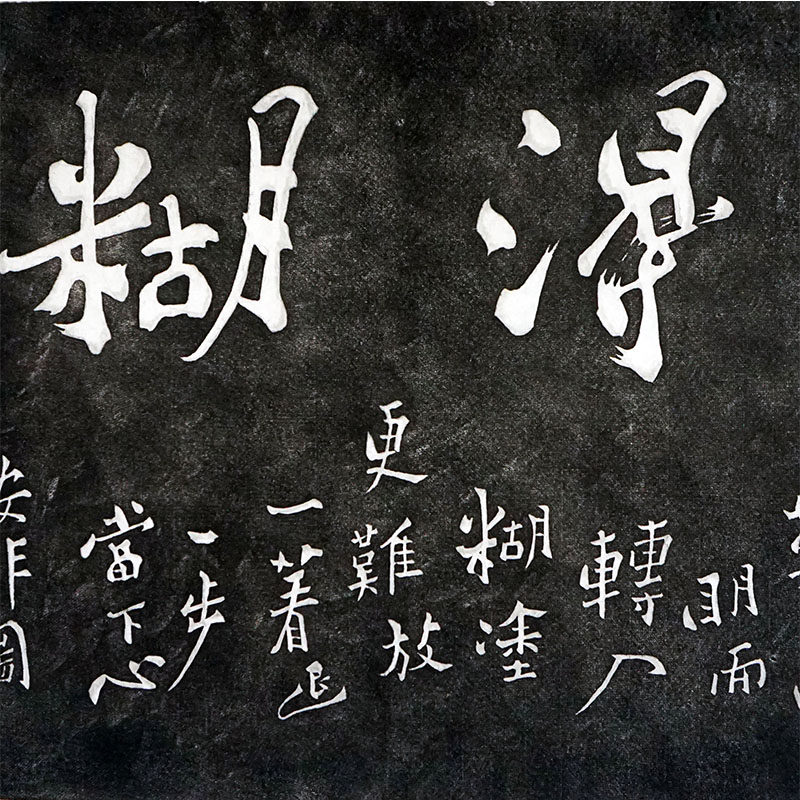 得糊
明而
轉入
糊塗
更難放
一着退
一步
當下心
安非圖